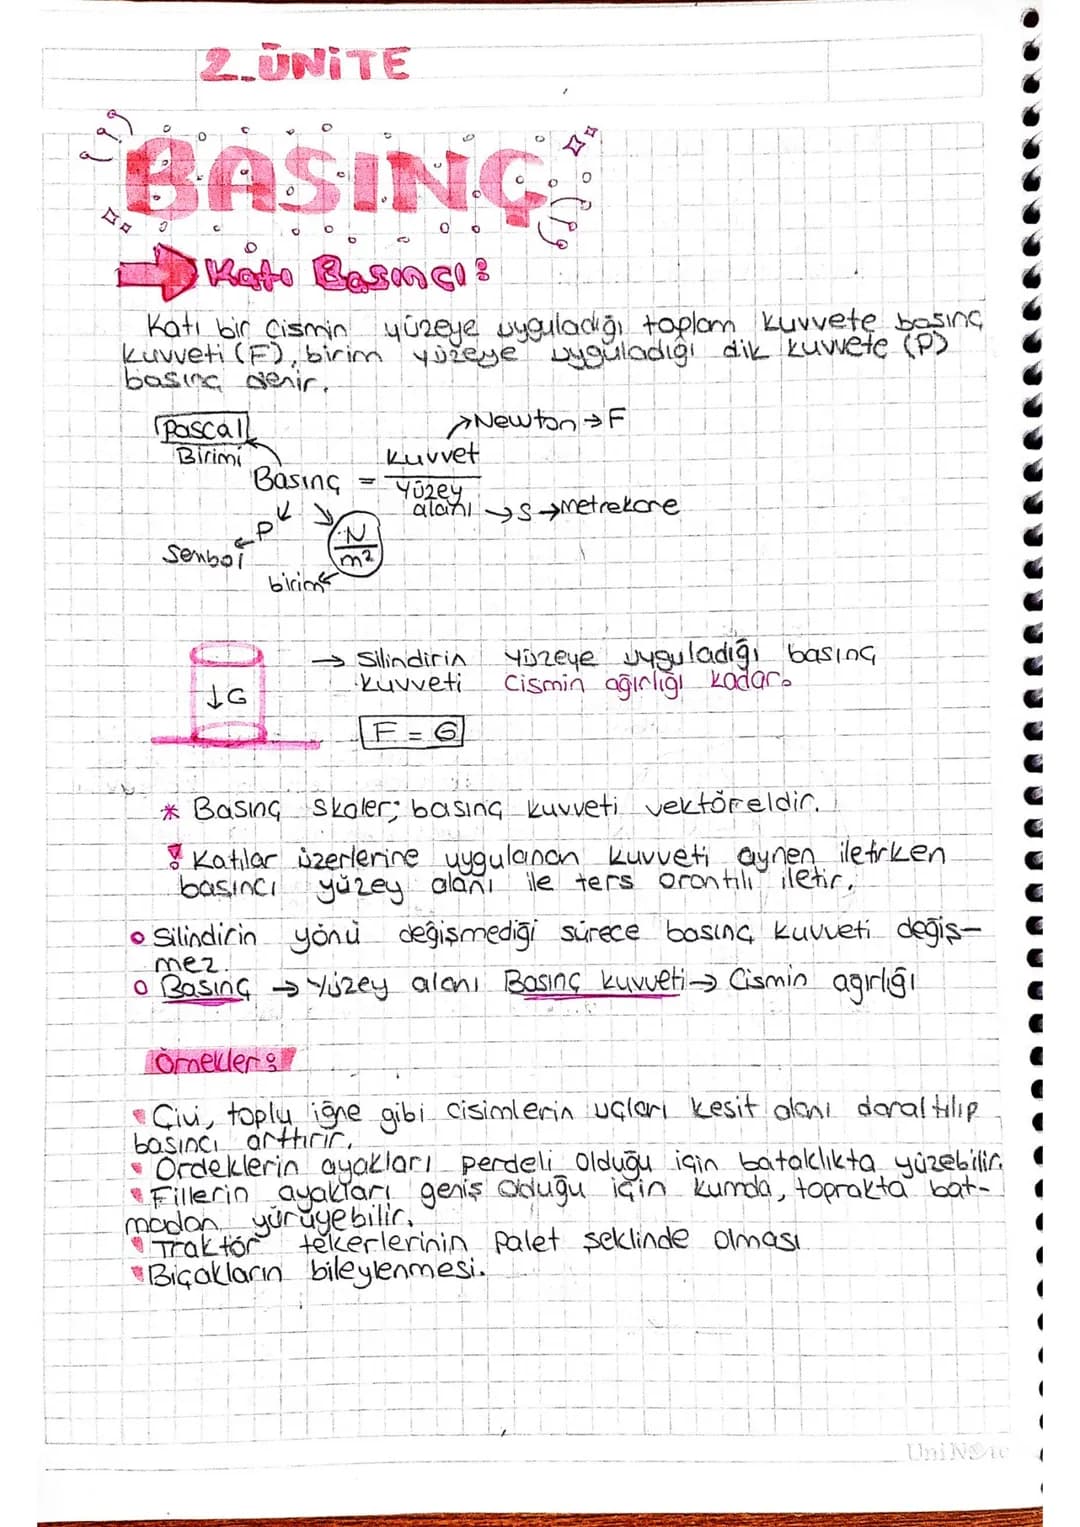 2. ÜNİTE
BASINÇ
Katı Basıncı:
Katı bir cismin yüzeye uyguladığı toplam kuvvete basınç
kuvveti (F), birim yüzeye uyguladığı dik kuvvete (P)
basınç denir.
Pascal
Birimi
→Newton→F
Basınç = Kuvvet
Yüzey
alanı →S→metrekare
Sembol ←P
N
m²
birim
→ Silindirin yüzeye uyguladığı basınç
kuvveti cismin ağırlığı kadar.
↓G
F = G
* Basınç skaler; basınç kuvveti vektöreldir.
! Katılar üzerlerine uygulanan kuvveti aynen iletirken
basıncı yüzey alanı ile ters orantılı iletir.
o Silindirin yönü değişmediği sürece basınç kuvveti değiş-
mez.
o Basınç → Yüzey alanı Basınç kuvveti → Cismin ağırlığı
Örnekler:
Çivi, toplu iğne gibi cisimlerin uçları kesit alanı daraltılıp
basıncı arttırır.
Ördeklerin ayakları perdeli olduğu için bataklıkta yüzebilir.
Fillerin ayakları geniş olduğu için kumda, toprakta bat-
madan yürüyebilir.
Traktör tekerlerinin palet şeklinde olması
Bıçakların bileylenmesi.
UniNote